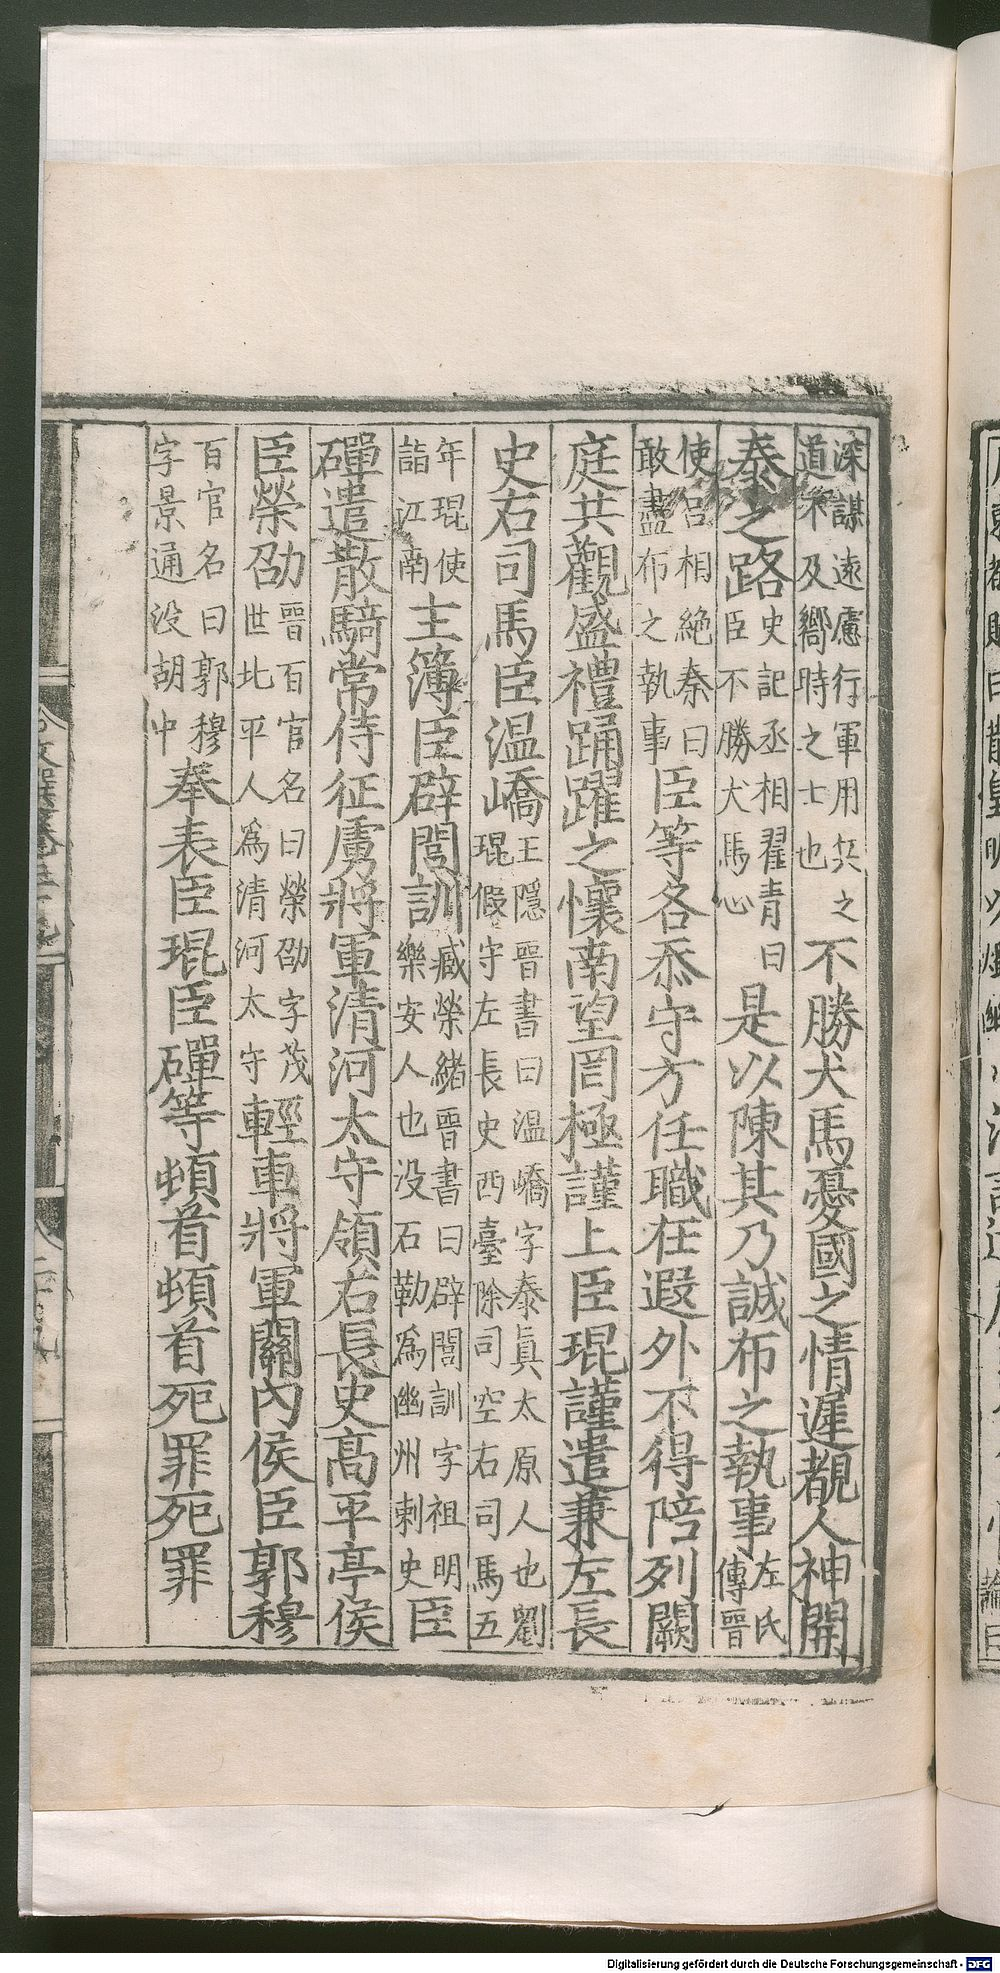 深謀遠慮行軍用兵之道不及嚮時之士也不勝犬馬憂國之情遲覩人神開
泰之路史記丞相翟青曰臣不勝犬馬心是以陳其乃誠布之執事左氏傳晉
使呂相絶秦曰敢盡布之執事臣等各忝守方任職在遐外不得陪列闕
庭共觀盛禮踊躍之懷南望罔極謹上臣琨謹遣兼左長
史右司馬臣温嶠王隱晉書曰温嶠字泰眞太原人也劉琨假守左長史西臺除司空右司馬五
年琨使詣江南主簿臣辟閭訓臧榮緒晉書曰辟閭訓字祖明樂安人也没石勒爲幽州刺史臣
磾遣散騎常侍征虜將軍清河太守領右長史高平亭侯
臣榮劭晉百官名曰榮劭字茂世北平人爲清河太守輕車將軍關內侯臣郭穆
百官名曰郭穆字景通没胡中奉表臣琨臣磾等頓首頓首死罪死罪
Digitalisierung gefördert durch die Deutsche Forschungsgemeinschaft - DFG